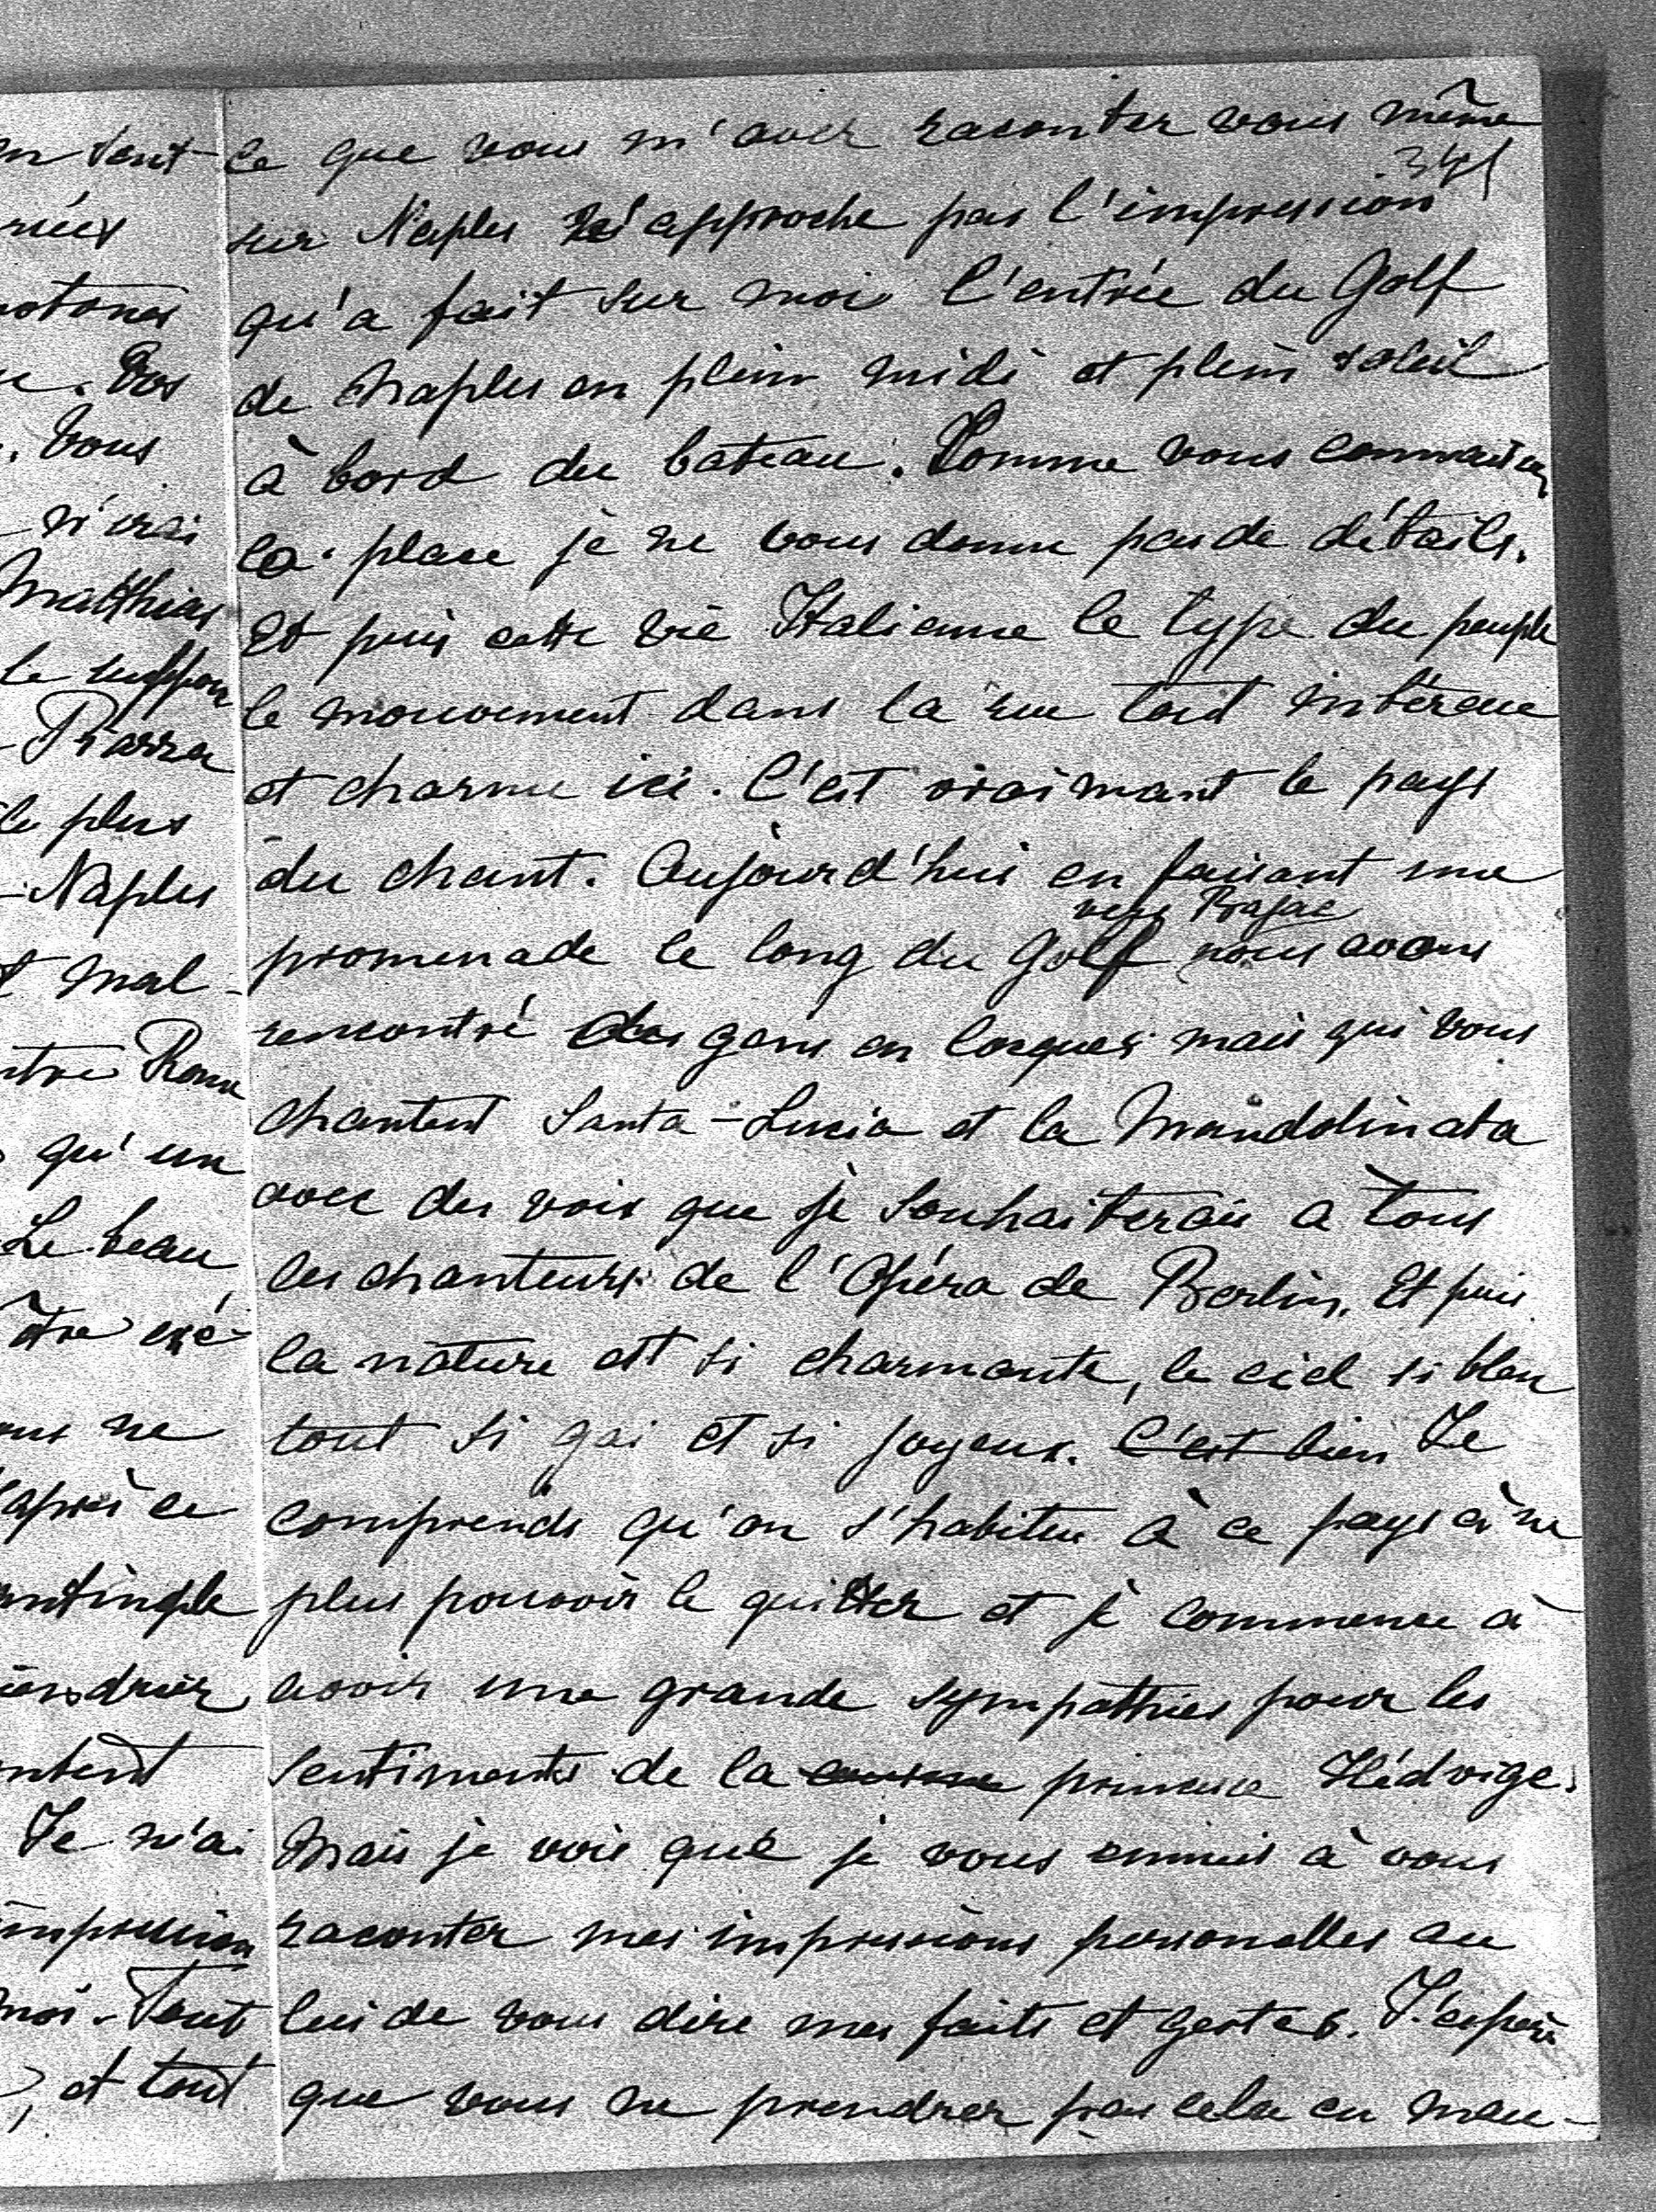 en tent
rués
notones
Vos
Vous
n'irai
Matthias
le
Piazza
le plus
Naples
t mal-
ntre Rome
qu'un
Le beau
être exé-
ous ne
après ce
antinople
iendrier
ntent
Je n'ai
impression
moi. Tout
, et tout
ce que vous m'avez raconter vous même
341
sur Naples n'approche pas l'impression
qu'a fait sur moi l'entrée du Golf
de Naples en plein midi et plein soleil
à bord du bateau. Comme vous connaissez
la place je ne vous donne pas de détails.
Et puis cette vie Italienne le type du peuple
le mouvement dans la rue tout intéresse
et charme ici. C'est vraimant le pays
du chant. Aujourd'hui en faisant une
vers Bajae
promenade le long du Golf nous avons
rencontré des gens en loques mais qui vous
chantent Santa-Lucia et la Mandolinata
avec des voix que je souhaiterais a tous
les chanteurs de l'Opéra de Berlin. Et puis
la nature est si charmante, le ciel si bleu
tout si gai et si joyeux. C'est bien Je
comprends qu'on s'habitue à ce pays à ne
plus pouvoir le quitter et je commence à
avoir une grande sympathies pour les
sentiments de la princesse Hédvige.
Mais je vois que je vous ennuis à vous
raconter mes impressions personelles au
lui de vous dire mes faits et gestes. J'espère
que vous ne prendrez pas cela en mau-